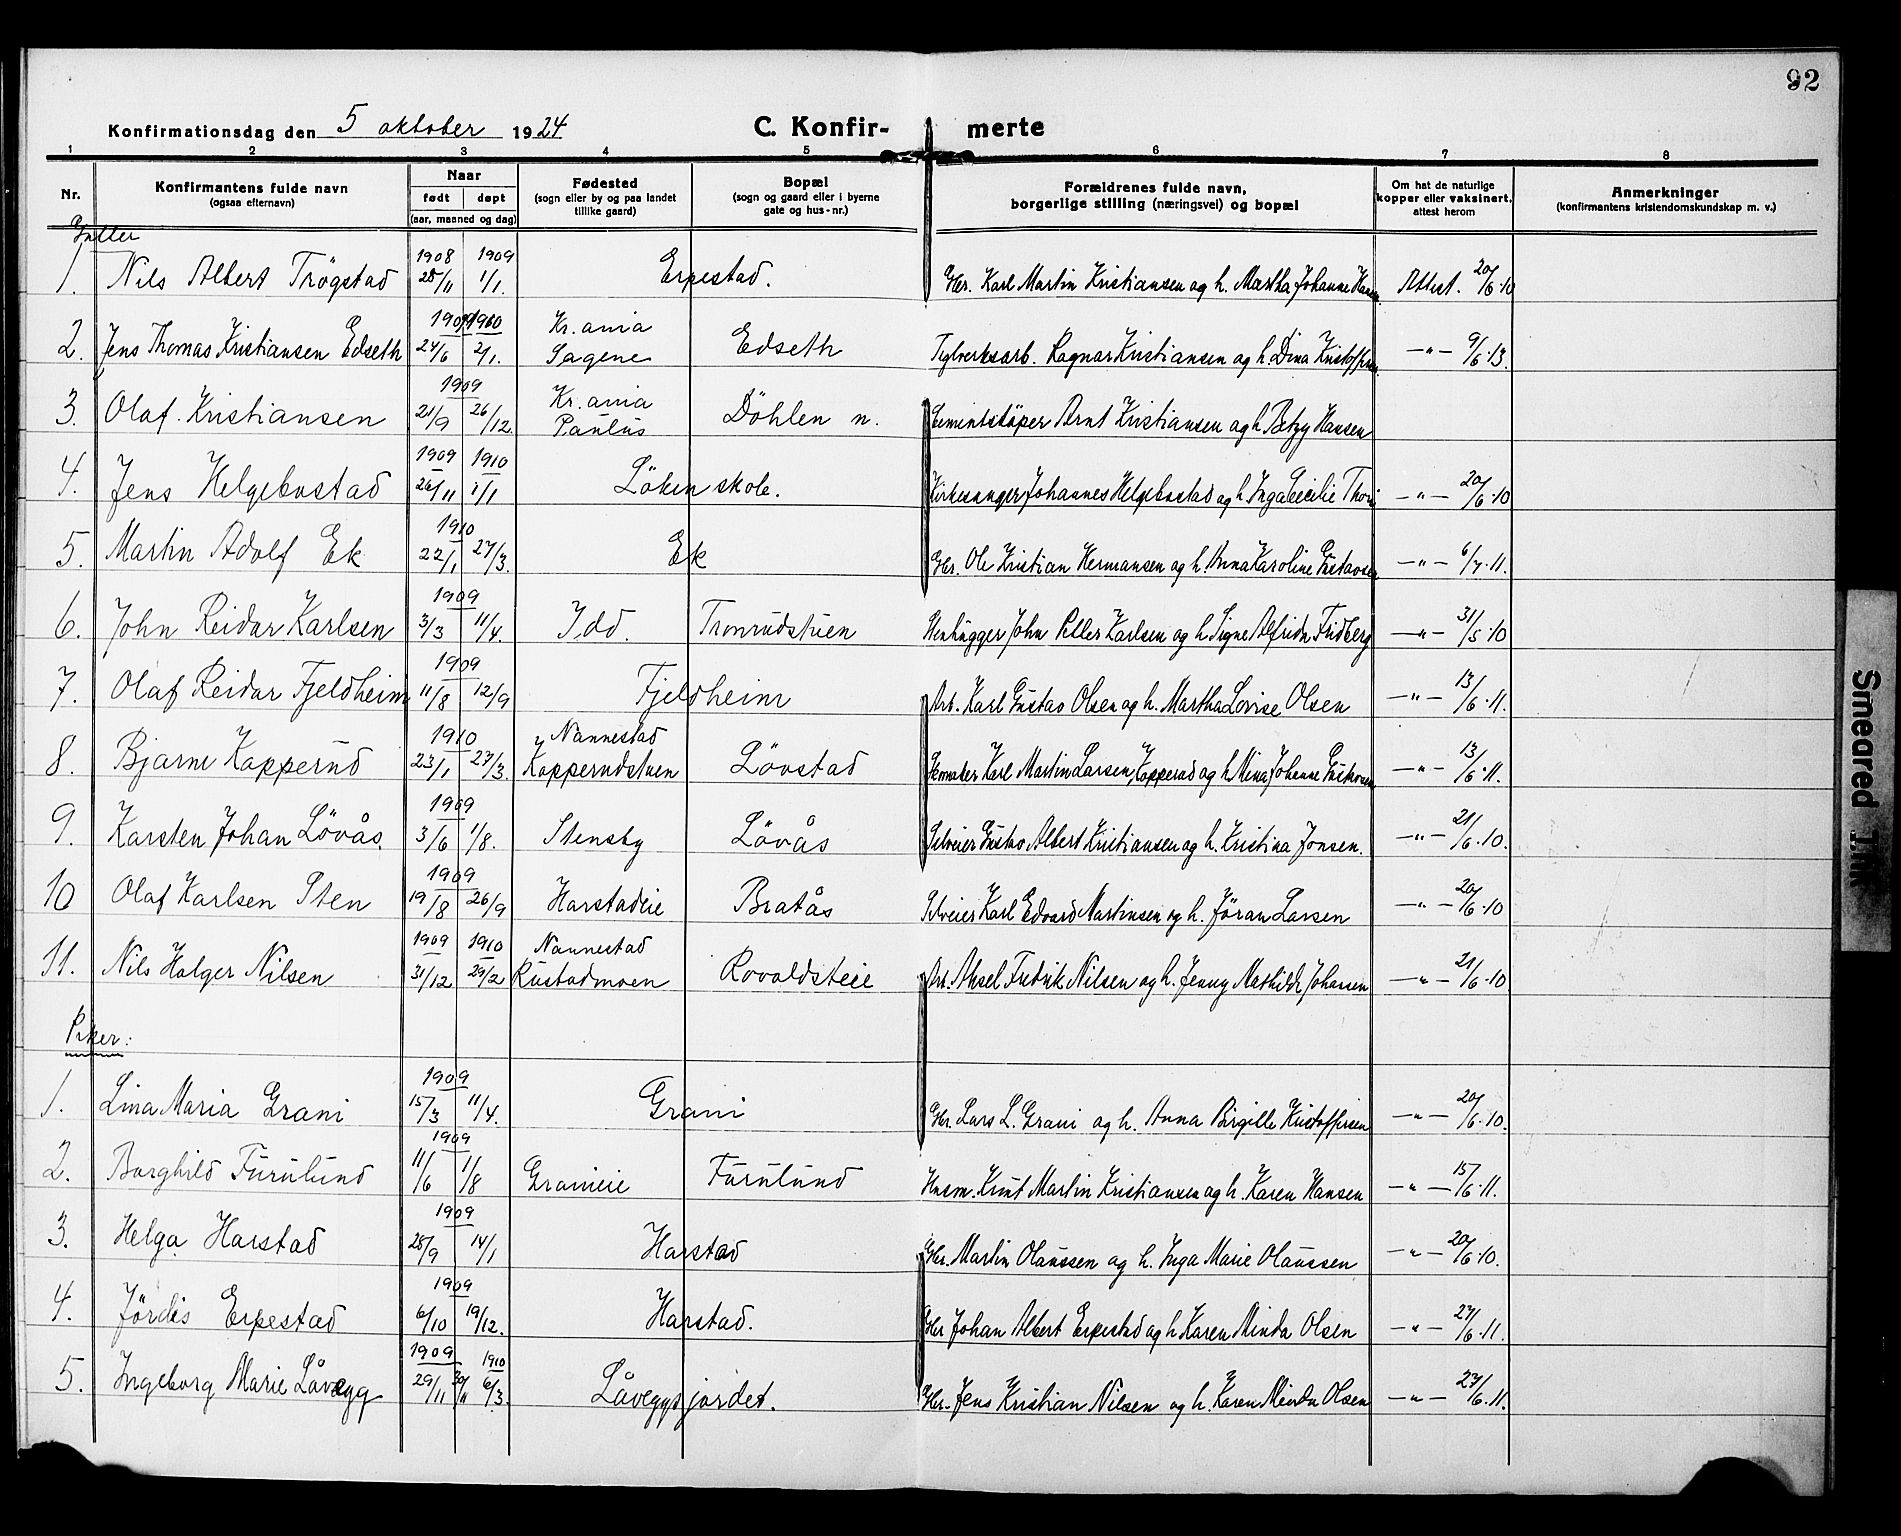 92
Konfirmationsdag den 5 oktober 1924 C. Konfir- merte
1 2 3 4 5 6 7 8
Nr. Konfirmantens fulde navn (ogsaa efternavn) Naar født døpt (aar, maaned og dag) Fødested (sogn eller by og paa landet tillike gaard) Bopæl (sogn og gaard eller i byerne gate og hus-nr.) Forældrenes fulde navn, borgerlige stilling (næringsvei) og bopæl Om hat de naturlige kopper eller vaksinert, attest herom Anmerkninger (konfirmantens kristendomskundskap m. v.)
Gutter
1. Nils Albert Trögstad 1908 28/11 1909 1/1. Erpestad. Gbr. Karl Martin Kristiansen og h. Martha Johanne Hansen Attest. 20/6.10
2. Jens Thomas Kristiansen Edseth 1909 24/6 1910 2/1. Kr.ania Sagene Edseth Teglverksarb. Ragnar Kristiansen og h. Dina Kristoffersen —"— 9/6.13.
3. Olaf Kristiansen 1909 21/9 26/12. Kr.ania Paulus Döhlen n. Sementstöper Arnt Kristiansen og h. Betzy Hansen
4. Jens Helgebostad 1909 26/11 1910 1/1 Löken skole. Kirkesanger Johannes Helgebostad og h. Inga Cecilie —"— 20/6.10
5. Martin Adolf Ek 1910 22/1 27/3. Ek Gbr. Ole Kristian Hermansen og h. Anna Karoline Gustavsen —"— 6/7.11.
6. John Reidar Karlsen 1909 3/3 11/4. Idd. Tronrudstuen Stenhugger John Petter Karlsen og h. Signe Alfrida Fridberg —"— 31/5.10
7. Olaf Reidar Fjeldheim 1909 11/8 12/9 Fjeldheim Arb. Karl Gustav Olsen og h. Martha Lovise Olsen —"— 13/6.11.
8. Bjarne Kopperud 1910 23/1 27/3. Nannestad Kopperudstuen Lövstad Skomaker Karl Martin Larsen Kopperud og h. Mina Johanne Gustavsen —"— 13/6.11.
9. Karsten Johan Lövås. 1909 3/6 1/8. Stensby Lövås Selveier Gustav Albert Kristiansen og h. Kristina Jonsen. —"— 21/6.10.
10 Olaf Karlsen Sten 1909 19/8 26/9 Harstadeie Bratås Selveier Karl Edvard Martinsen og h. Jöran Larsen —"— 20/6.10
11. Nils Holger Nilsen 1909 31/12 1910 29/2 Nannestad Rustadmoen Rovoldseie Arb. Aksel Fredrik Nilsen og h. Jenny Mathilde Johansen —"— 21/6.10
Piker:
1. Lina Maria Grani 1909 15/3 11/4. Grani Gbr. Lars L. Grani og h. Anna Birgitte Kristoffersen —"— 20/6.10.
2. Borghild Furulund 1909 11/6 1/8 Granieie Furulund Husm. Knut Martin Kristiansen og h. Karen Hansen —"— 15/6.11.
3. Helga Harstad 1909 28/9 14/1 Harstad Gbr. Martin Olaussen og h. Inga Marie Olaussen —"— 20/6.10.
4. Jördis Erpestad 1909 6/10 19/12. Harstad. Gbr Johan Albert Erpestad og h. Karen Minda Olsen —"— 27/6.11.
5. Ingeborg Marie Låvegg 1909 29/11 30/11 1910 6/3. Låveggsjordet. Gbr. Jens Kristian Nilsen og h. Karen Minda Olsen —"— 27/6.11.
Smeared Ink